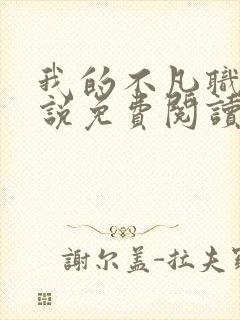 我的不凡職
說免費閱讀
謝尔盖-拉夫羅